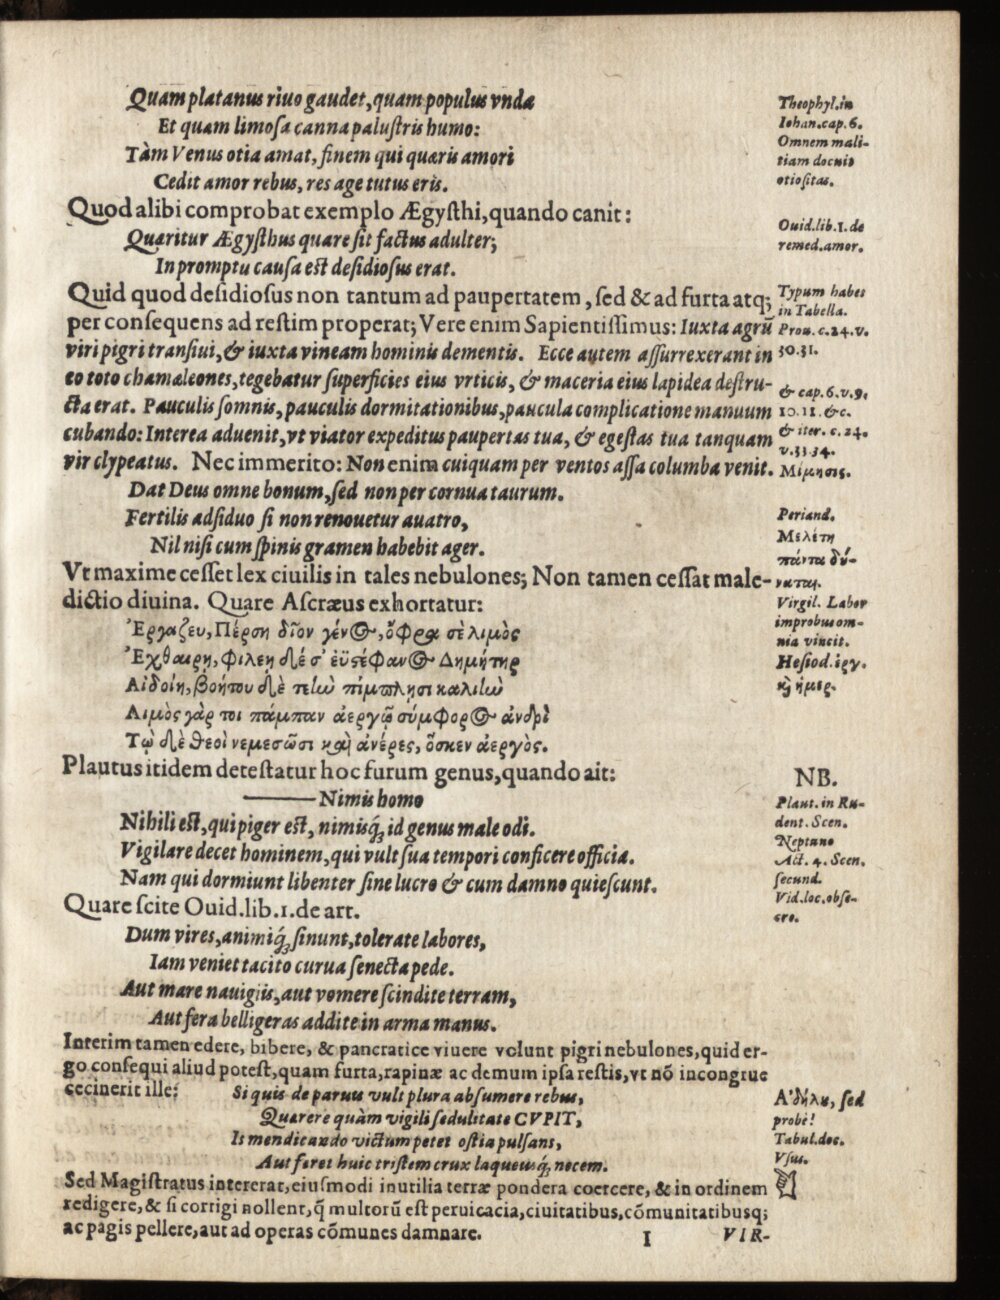 Quam platanus riuo gaudet, quam populus vnda
Et quam limoſa canna paluſtris humo:
Tàm Venus otia amat, finem qui quæris amori
Cedit amor rebus, res age tutus eris.
Quod alibi comprobat exemplo Ægyſthi, quando canit:
Quæritur Ægyſthus quare ſit factus adulter;
In promptu cauſa eſt deſidioſus erat.
Quid quod deſidioſus non tantum ad paupertatem, ſed & ad furta atq;
per conſequens ad reſtim properat; Vere enim Sapientiſſimus: Iuxta agrū
viri pigri tranſiui, & iuxta vineam hominis dementis. Ecce autem aſſurrexerant in
eo toto chamæleones, tegebatur ſuperficies eius vrticis, & maceria eius lapidea deſtru-
cta erat. Pauculis ſomnis, pauculis dormitationibus, paucula complicatione manuum
cubando: Interea aduenit, vt viator expeditus paupertas tua, & egeſtas tua tanquam
vir clypeatus. Nec immerito: Non enim cuiquam per ventos aſſa columba venit.
Dat Deus omne bonum, ſed non per cornua taurum.
Fertilis adſiduo ſi non renouetur auatro,
Nil niſi cum ſpinis gramen habebit ager.
Vt maxime ceſſet lex ciuilis in tales nebulones; Non tamen ceſſat male-
dictio diuina. Quare Aſcræus exhortatur:
Ἐργάζευ, Πέρση δῖον γένος, ὄφρα σὲ λιμὸς
Ἐχθαιρη, φιλεη δέ σ' ἐϋστέφανος Δημήτηρ
Αἰδοίη, βοήτου δὲ τεὶω πίμπλησι καλιὶω
Λιμὸς γάρ τοι πάμπαν ἀεργῷ σύμφορος ἀνδρὶ
Τῷ δὲ θεοὶ νεμεσῶσι καὶ ἀνέρες, ὅσκεν ἀεργὸς.
Plautus itidem deteſtatur hoc furum genus, quando ait:
——— Nimis homo
Nihili eſt, qui piger eſt, nimisq́; id genus male odi.
Vigilare decet hominem, qui vult ſua tempori conficere officia.
Nam qui dormiunt libenter ſine lucro & cum damno quieſcunt.
Quare ſcite Ouid. lib. 1. de art.
Dum vires, animiq́; ſinunt, tolerate labores,
Iam veniet tacito curua ſenecta pede.
Aut mare nauigiis, aut vomere ſcindite terram,
Aut fera belligeras addite in arma manus.
Interim tamen edere, bibere, & pancratice viuere volunt pigri nebulones, quid er-
go conſequi aliud poteſt, quam furta, rapinæ ac demum ipſa reſtis, vt nō incongrue
cecinerit ille:
Si quis de paruis vult plura abſumere rebus,
Quærere quàm vigili ſedulitate CVPIT,
Is mendicando victum petet oſtia pulſans,
Aut feret huic triſtem crux laqueusq́; necem.
Sed Magiſtratus intererat, eiuſmodi inutilia terræ pondera coercere, & in ordinem
redigere, & ſi corrigi nollent, q̄ multorū eſt peruicacia, ciuitatibus, cōmunitatibusq;
ac pagis pellere, aut ad operas cōmunes damnare.
I VIR-
Theophyl. in
Iohan. cap. 6.
Omnem mali-
tiam docuit
otioſitas.
Ouid. lib. 1. de
remed. amor.
Typum habes
in Tabella.
Prou. c. 24. v.
30. 31.
& cap. 6. v. 9.
10. 11. &c.
& iter. c. 24.
v. 33 34.
Μίμησις.
Periand.
Μελέτη
πάντα δύ-
ναται.
Virgil. Labor
improbus om-
nia vincit.
Heſiod. ἐργ.
κ̀ ἡμερ.
NB.
Plaut. in Ru-
dent. Scen.
Neptuno
Act. 4. Scen.
ſecund.
Vid. loc. obſe-
cro.
Ἀδήλου, ſed
probè!
Tabul. doc.
Vſus.